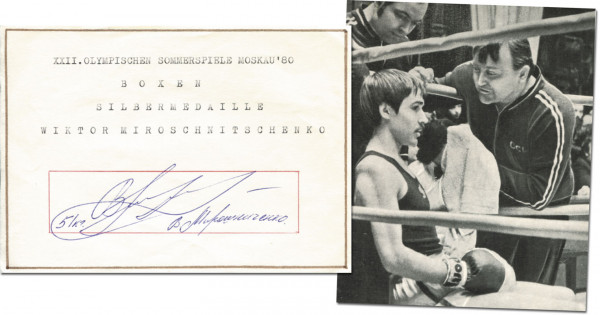 XXII.OLYMPISCHEN SOMMERSPIELE MOSKAU'80
BOXEN
SILBERMEDAILLE
WIKTOR MIROSCHNITSCHENKO
51кг. В. Мирошниченко.